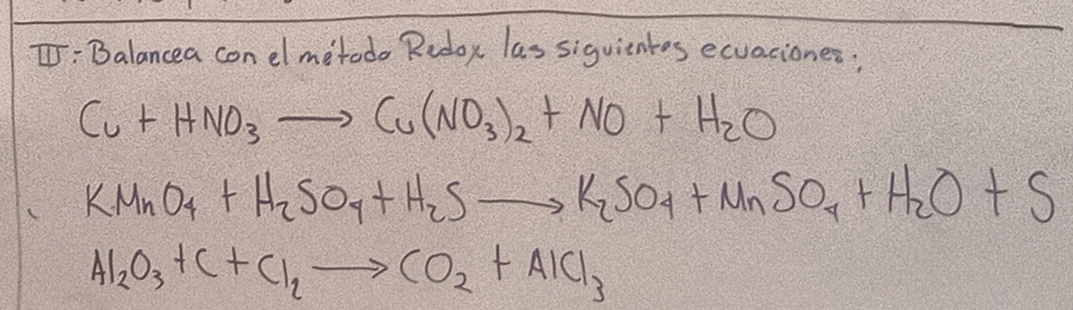 III: Balancea con el método Redox las siguientes ecuaciones:
Cu + HNO₃ ⟶ Cu(NO₃)₂ + NO + H₂O
KMnO₄ + H₂SO₄ + H₂S ⟶ K₂SO₄ + MnSO₄ + H₂O + S
Al₂O₃ + C + Cl₂ ⟶ CO₂ + AlCl₃